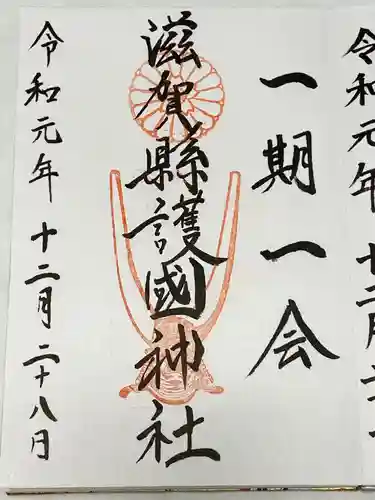 令和元年十二月二
一期一会
滋賀縣護國神社
令和元年十二月二十八日